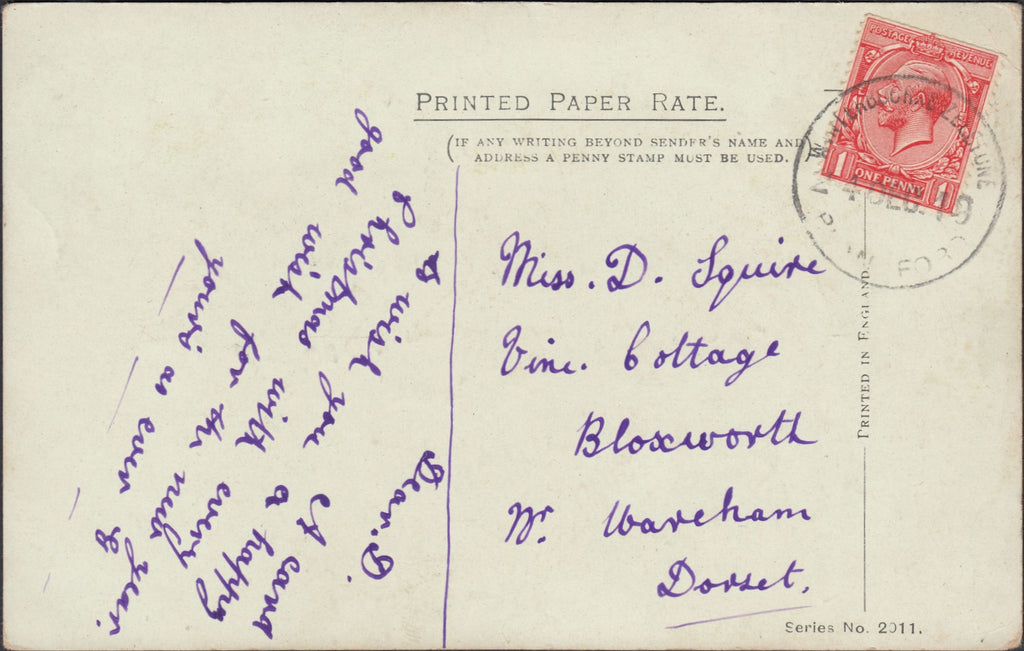 PRINTED PAPER RATE.
(IF ANY WRITING BEYOND SENDER'S NAME AND)
ADDRESS A PENNY STAMP MUST BE USED.
POSTAGE REVENUE
1 ONE PENNY 1
DEC. 19
Dear. D.
A card
to wish you a happy
Christmas with every
good wish for the new year.
yours as ever E
Miss. D. Squire
Vine. Cottage
Bloxworth
Nr. Wareham
Dorset.
PRINTED IN ENGLAND.
Series No. 2011.